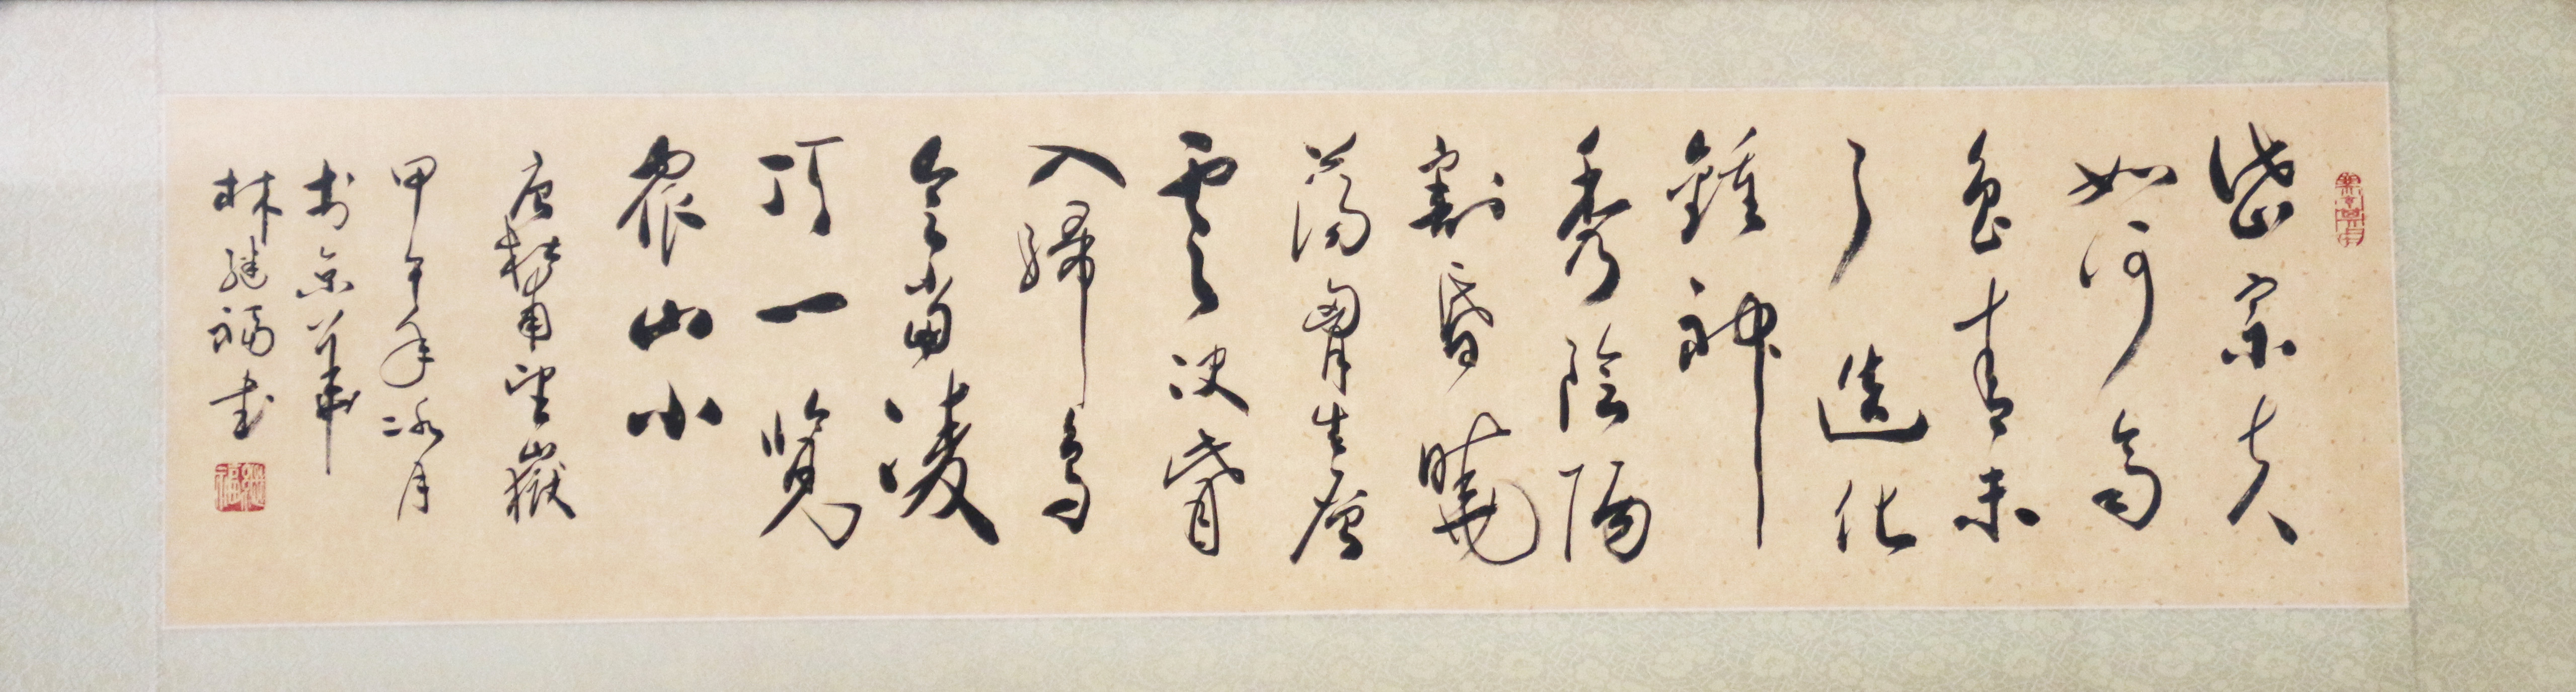 岱宗夫
如何齊
魯青未
了造化
鍾神
秀陰陽
割昏曉
蕩胷生層
雲决眥
入歸鳥
會當凌
頂一覽
衆山小
唐杜甫望嶽
甲午年冰月
於京華
林继福書
繼福